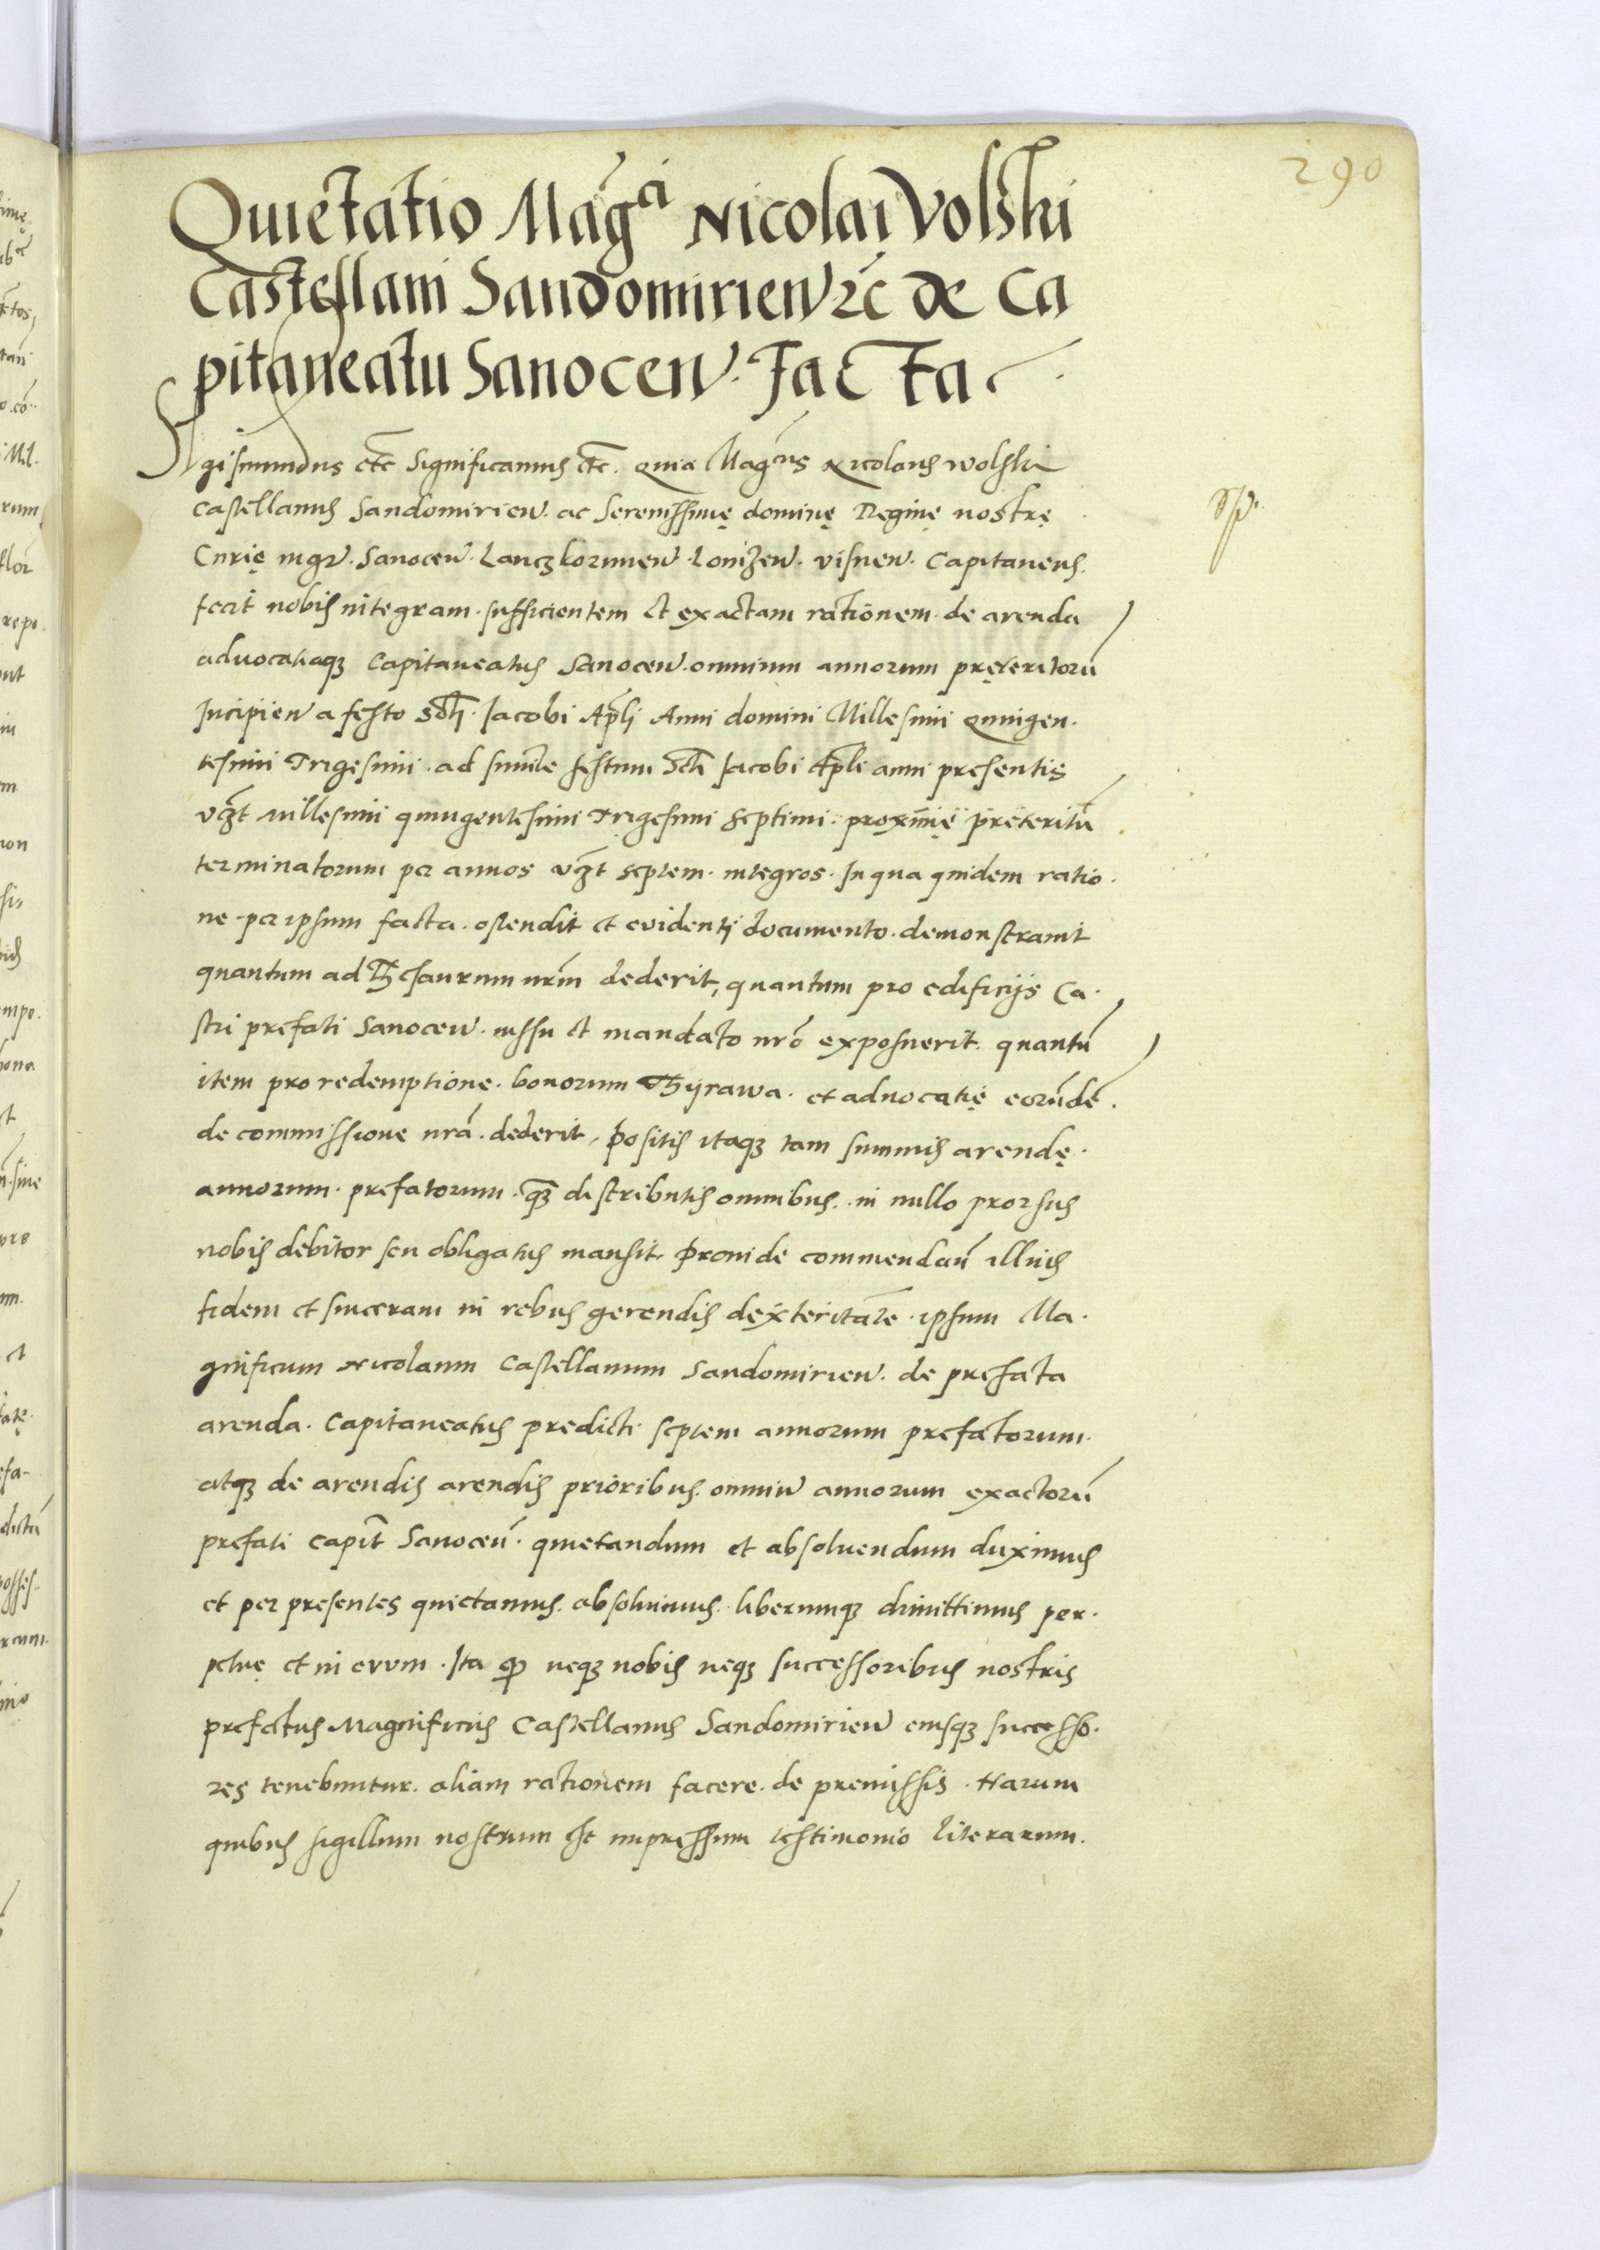 290
Quietatio Mag^ci Nicolai Volski
Castellani Sandomirien̄ &c̄ de Ca
pitaneatu Sanocen̄. facta
Sigismundus etc̄ Significamus etc̄. quia Mag^cus Nicolaus wolski
castellanus Sandomirien̄. ac Serenissimę dominę Reginę nostrę
Curię mgr̄. Sanocen̄. Lanczkorunen̄. Lomzen̄. visnen̄. Capitaneus.
fecit nobis integram. sufficientem et exactam rationem. de arenda
advocatiaqȝ Capitaneatus Sanocen̄. omnium annorum pręteritorū
Incipien̄ a festo Scti. Iacobi Apl̄i Anni domini Millesimi quingen.
tesimi Trigesimi. ad simile festum Scti Iacobi Apl̄i anni presentis
vȝt millesimi quingentesimi Trigesimi septimi. proximę preteritū
terminatorum per annos vȝt septem. integros. In qua quidem ratio.
ne per ipsum facta. ostendit et evidenti documento. demonstravit
quantum ad Thesaurum nr̄m dederit, quantum pro edificijs Ca.
stri prefati Sanocen̄. iussu et mandato nr̄o exposuerit. quantū
item pro redemptione. bonorum Thyrawa. et advocatię eorūdē.
de commissione nr̄a. dederit, positis itaqȝ tam summis arendę.
annorum. prefatorum. qȝ distributis omnibus. in nullo prorsus
nobis debitor seu obligatus mansit. Proinde commendan̄ illius
fidem et sinceram in rebus gerendis dexteritatē. ipsum Ma.
gnificum Nicolaum Castellanum Sandomirien̄. de prefata
arenda. Capitaneatus predicti septem annorum prefatorum.
atqȝ de arendis arendis prioribus. omniū annorum exactorū
prefati Capit̄ Sanocen̄. quietandum et absolvendum duximus
et per presentes quietamus. absolvimus. liberumqȝ dimittimus per.
petuę et in evum. Ita qđ neqȝ nobis neqȝ successoribus nostris
prefatus Magnificus Castellanus Sandomirien̄ eiusqȝ successo.
res tenebuntur. aliam rationem facere. de premissis. Harum
quibus sigillum nostrum est impressum testimonio literarum.